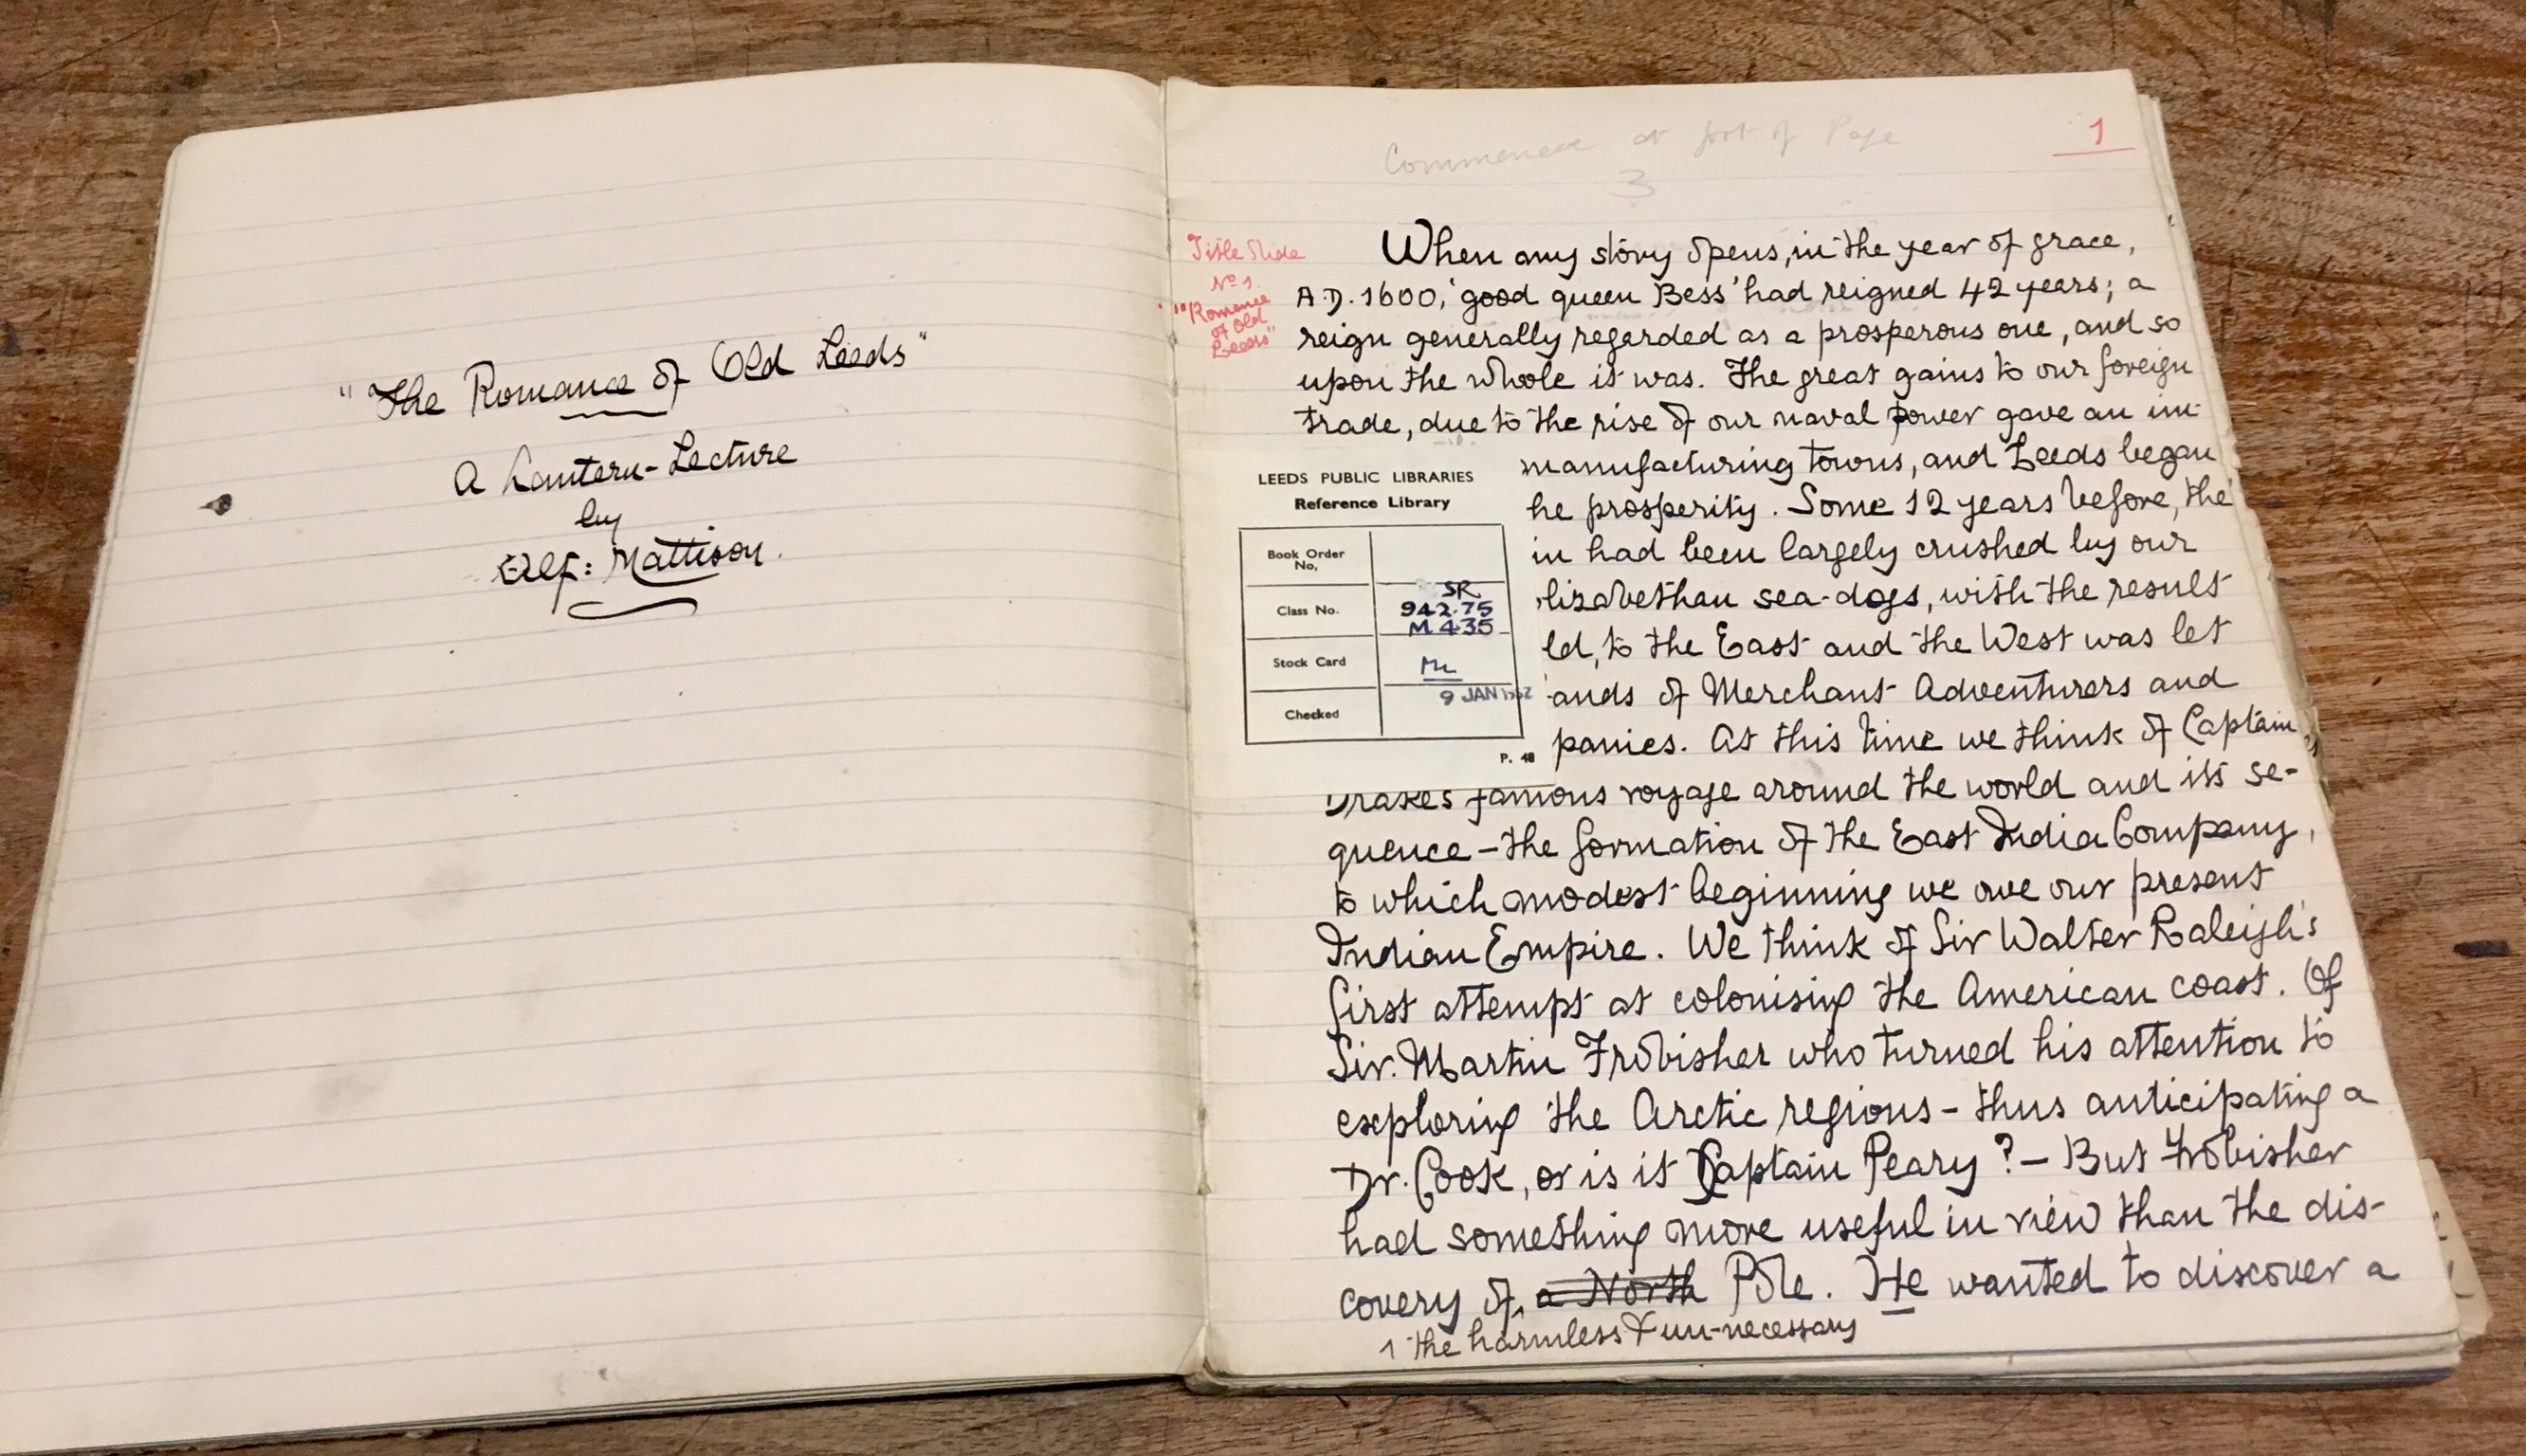 "The Romance of Old Leeds"
A Lantern-Lecture
by
Alf: Mattison.
Commence at foot of Page
3
1
Title Slide
No 1.
"Romance
of Old
Leeds"
When my story opens, in the year of grace,
A.D. 1600, 'good queen Bess' had reigned 42 years; a
reign generally regarded as a prosperous one, and so
upon the whole it was. The great gains to our foreign
trade, due to the rise of our naval power gave an im-
manufacturing towns, and Leeds began
he prosperity. Some 12 years before, the
in had been largely crushed by our
lizabethan sea-dogs, with the result
ld, to the East and the West was let
ands of Merchant Adventurers and
panies. At this time we think of Captain
Drake's famous voyage around the world and its se-
quence – the formation of the East India Company,
to which modest beginning we owe our present
Indian Empire. We think of Sir Walter Raleigh's
first attempt at colonising the American coast. Of
Sir. Martin Frobisher who turned his attention to
exploring the Arctic regions – thus anticipating a
Dr. Cook, or is it Captain Peary? – But Frobisher
had something more useful in view than the dis-
covery of a North Pole. He wanted to discover a
the harmless & un-necessary
LEEDS PUBLIC LIBRARIES
Reference Library
Book Order
No,
Class No.
SR
942.75
M 435
Stock Card
Checked
9 JAN
P. 48